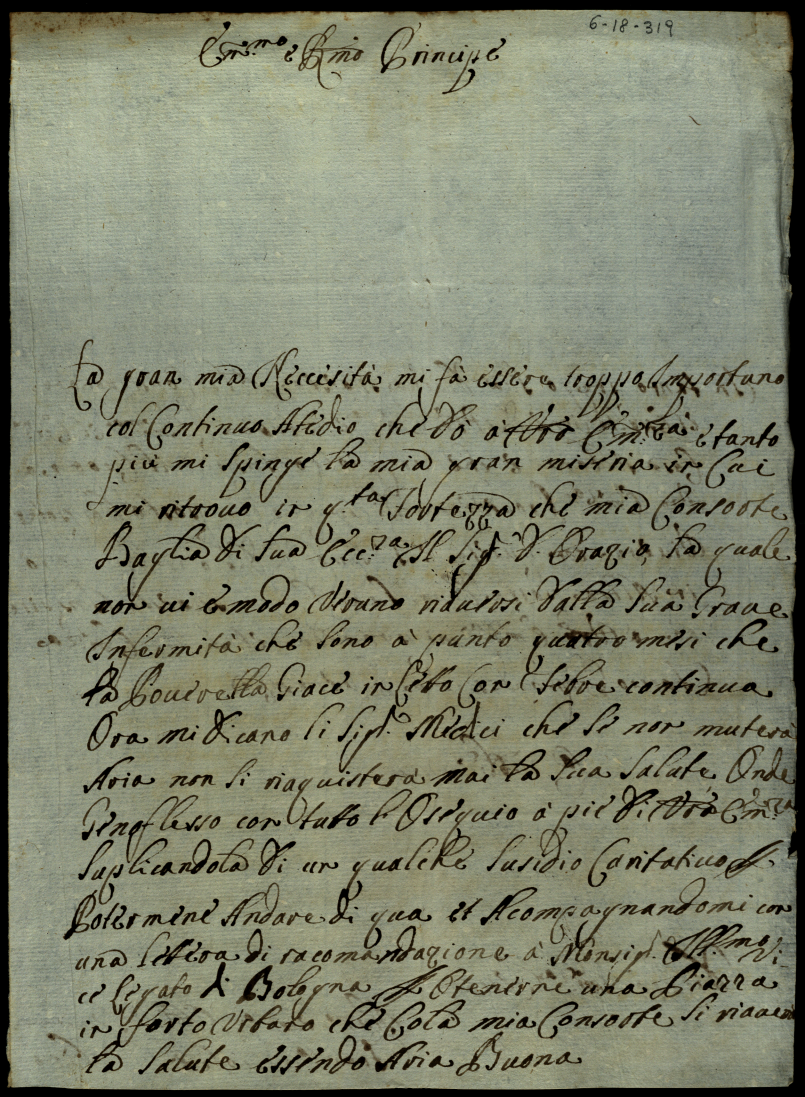 6-18-319
Em.mo e Rmo Principe
La gran mia Neccesità mi fà essere troppo Importuno
col Continuo Atedio che dò a Vra Em.za e tanto
più mi spinge la mia gran miseria in Cui
mi ritrovo in q.ta Fortezza che mia Consorte
Baglia di Sua Ecc.za Il Sig.r D. Orazio, la quale
non vi è modo veruno riaversi dalla Sua Grave
Infermità che sono a punto quatro mesi che
la Poverella Giace in Letto Con febre continua
Ora mi dicano li Sig.ri Medici che se non muterà
Aria non si riaquisterà mai la Sua Salute Onde
Genoflesso con tutto l'Osequio a piè di Vra Em.za
Suplicandola di un qualche Susidio Caritativo p.
Potermene Andare di qua et Acompagnandomi con
una lettera di racomandazione a Monsig.r Ill.mo Vi
ce legato di Bologna p. Otenerne una Piazza
in forto Urbano che Colà mia Consorte si riaverà
la Salute essendo Aria Buona